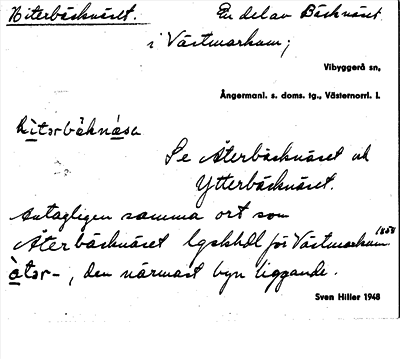 Niterbäcknäset. En del av Bäcknäset
i Västmarkum;
Vibyggerå sn,
Ångermanl. s. doms. tg., Västernorrl. l.
Se Återbäcknäset och
Ytterbäcknäset.
Antagligen samma ort som
Återbäcknäset lgskhdl för Västmarkum
åtər-, den närmast byn liggande.
Sven Hiller 1948